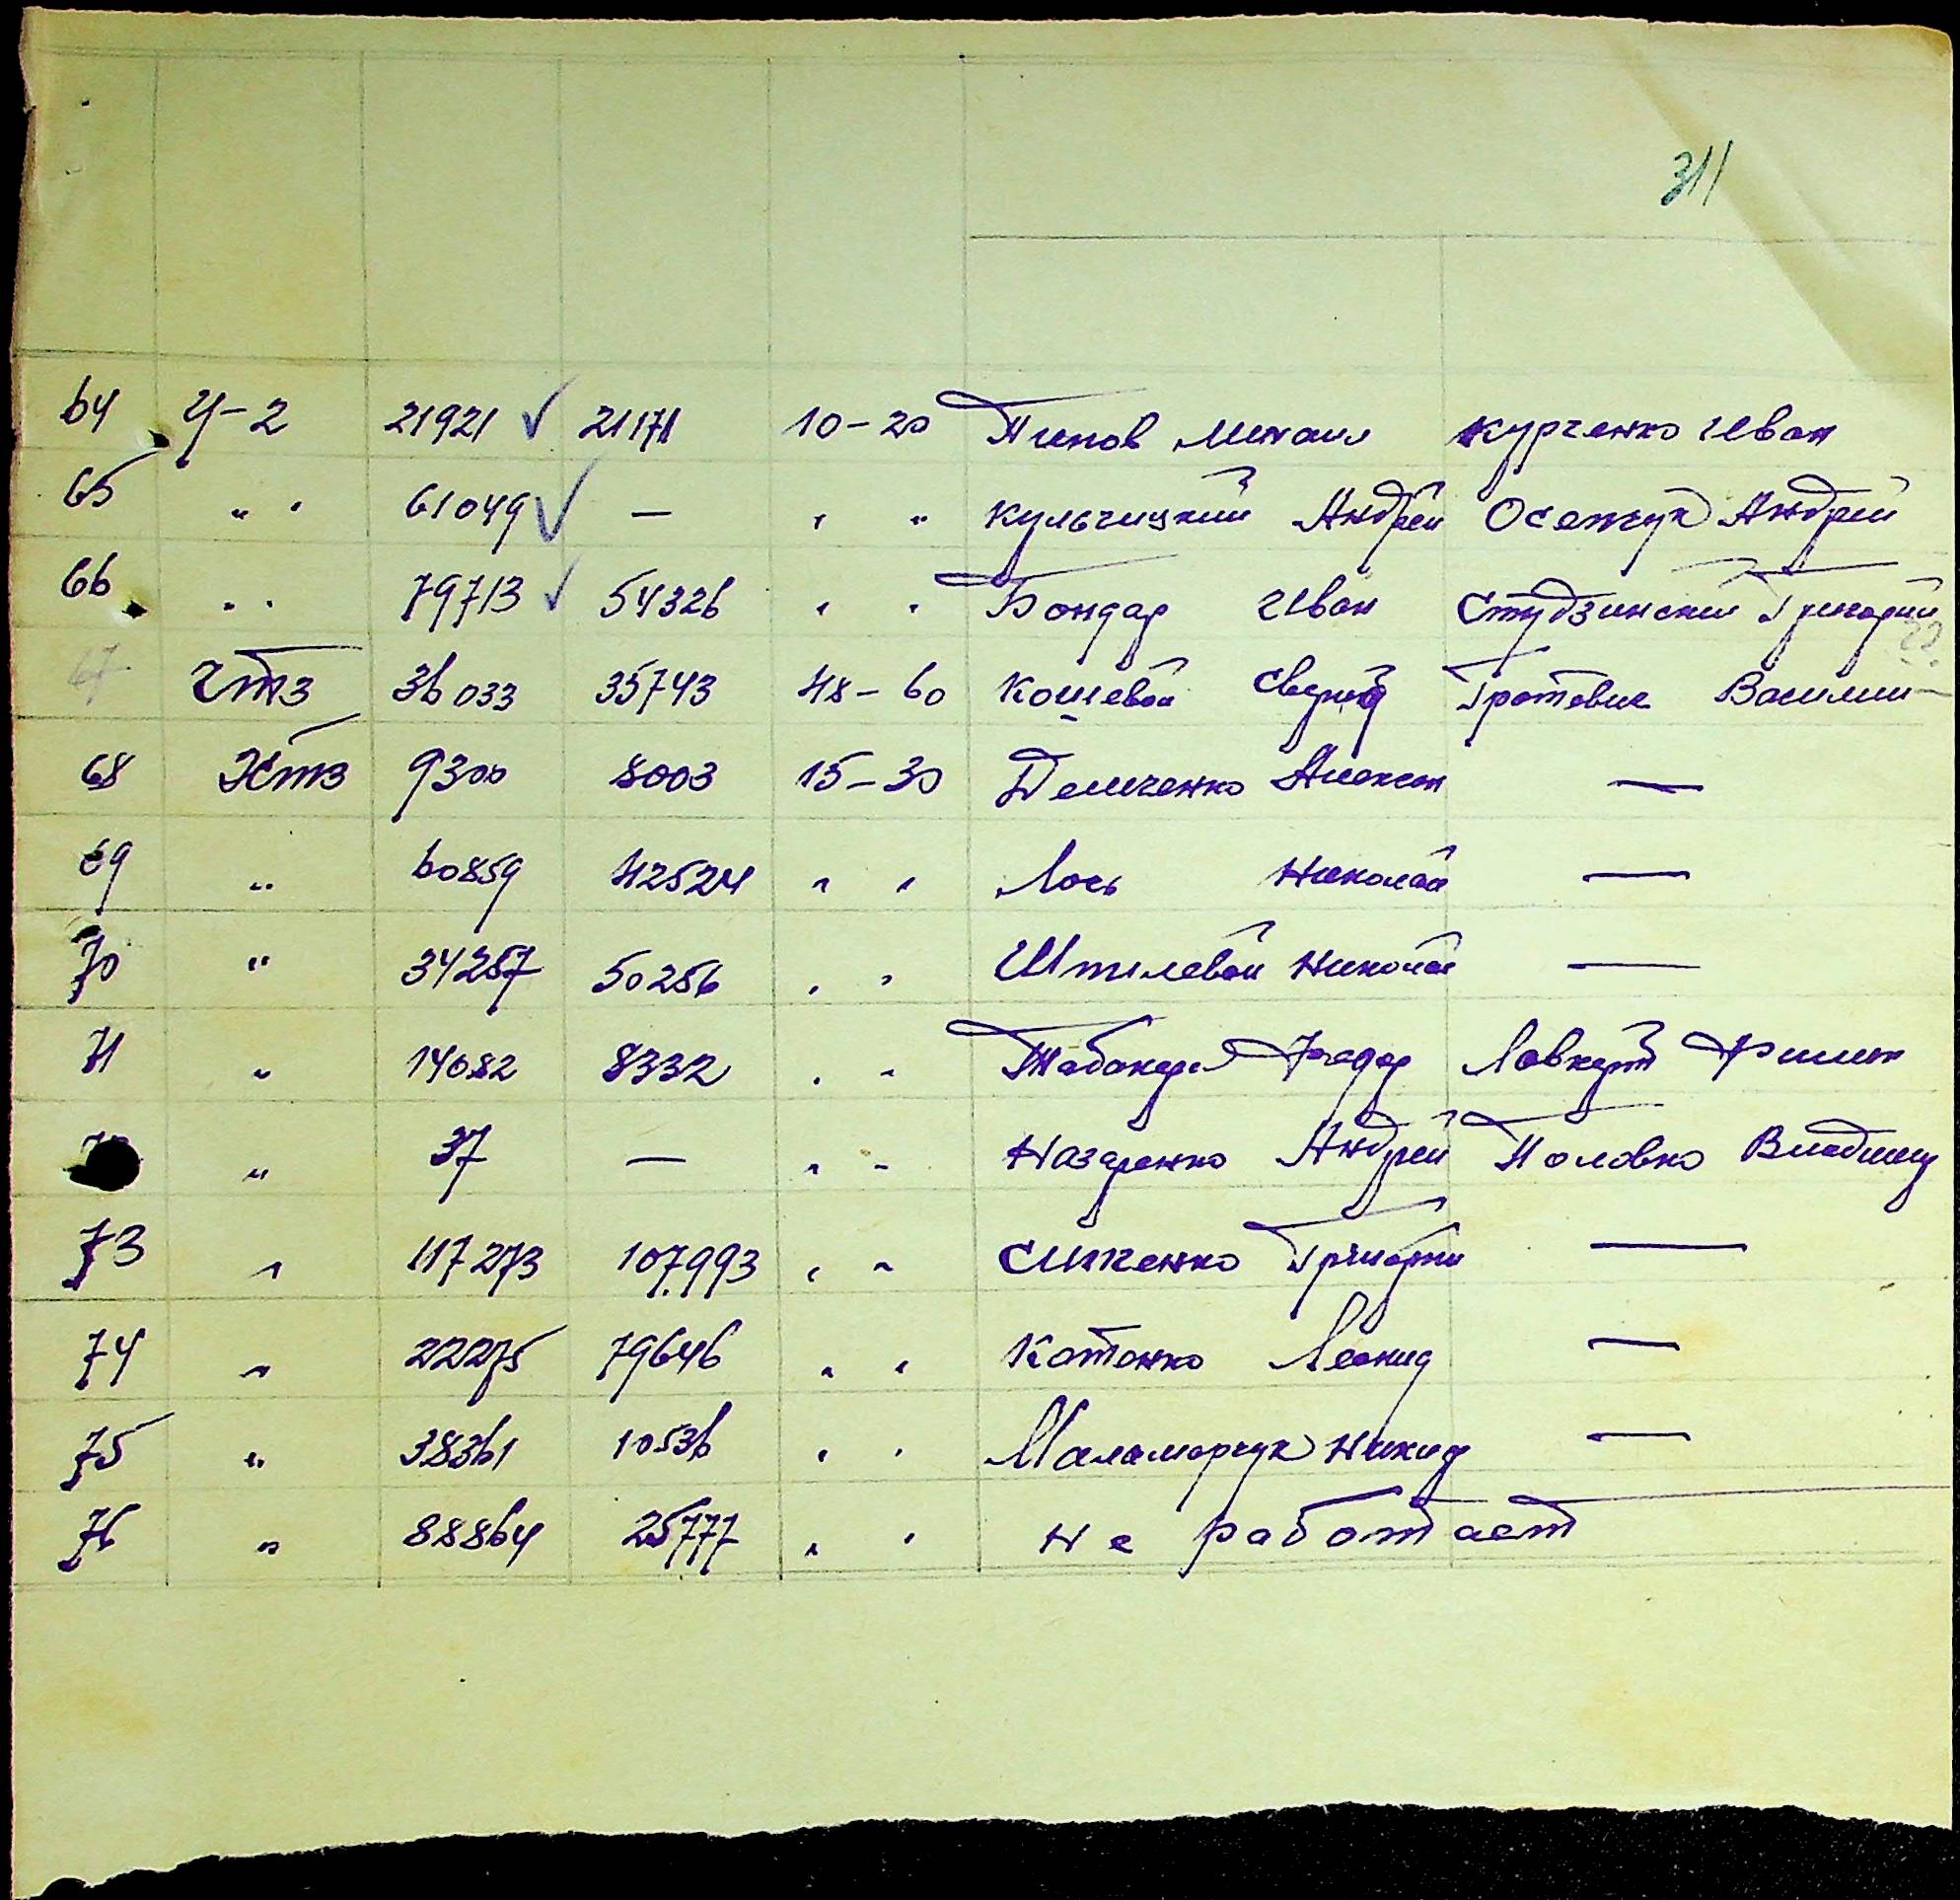 311
64 У-2 21921 ✓ 21171 10-20 Типов Михаил Курченко Иван
65 " " 61049 ✓ — " " Кульчицкий Андрей Осетчук Андрей
66 " " 79713 ✓ 54326 " " Бондар Иван Студзинский Григорий
67 ЧТЗ 36033 35743 48-60 Кошевой Василий
68 ХТЗ 9300 8003 15-30 Демченко Алексан —
69 " 60859 42524 " " Лось Николай —
70 " 34257 50256 " " Штилевой Николай —
71 " 14082 8332 " " Федор Ловкут Филип
" 37 — " " Назаренко Андрей Половко Владимир
73 " 117273 107.993 " " Григорий —
74 " 22275 79646 " " Котенко Леонид —
75 " 38361 10536 " " Маламарчук Никид —
76 " 88864 25777 " " Не работает